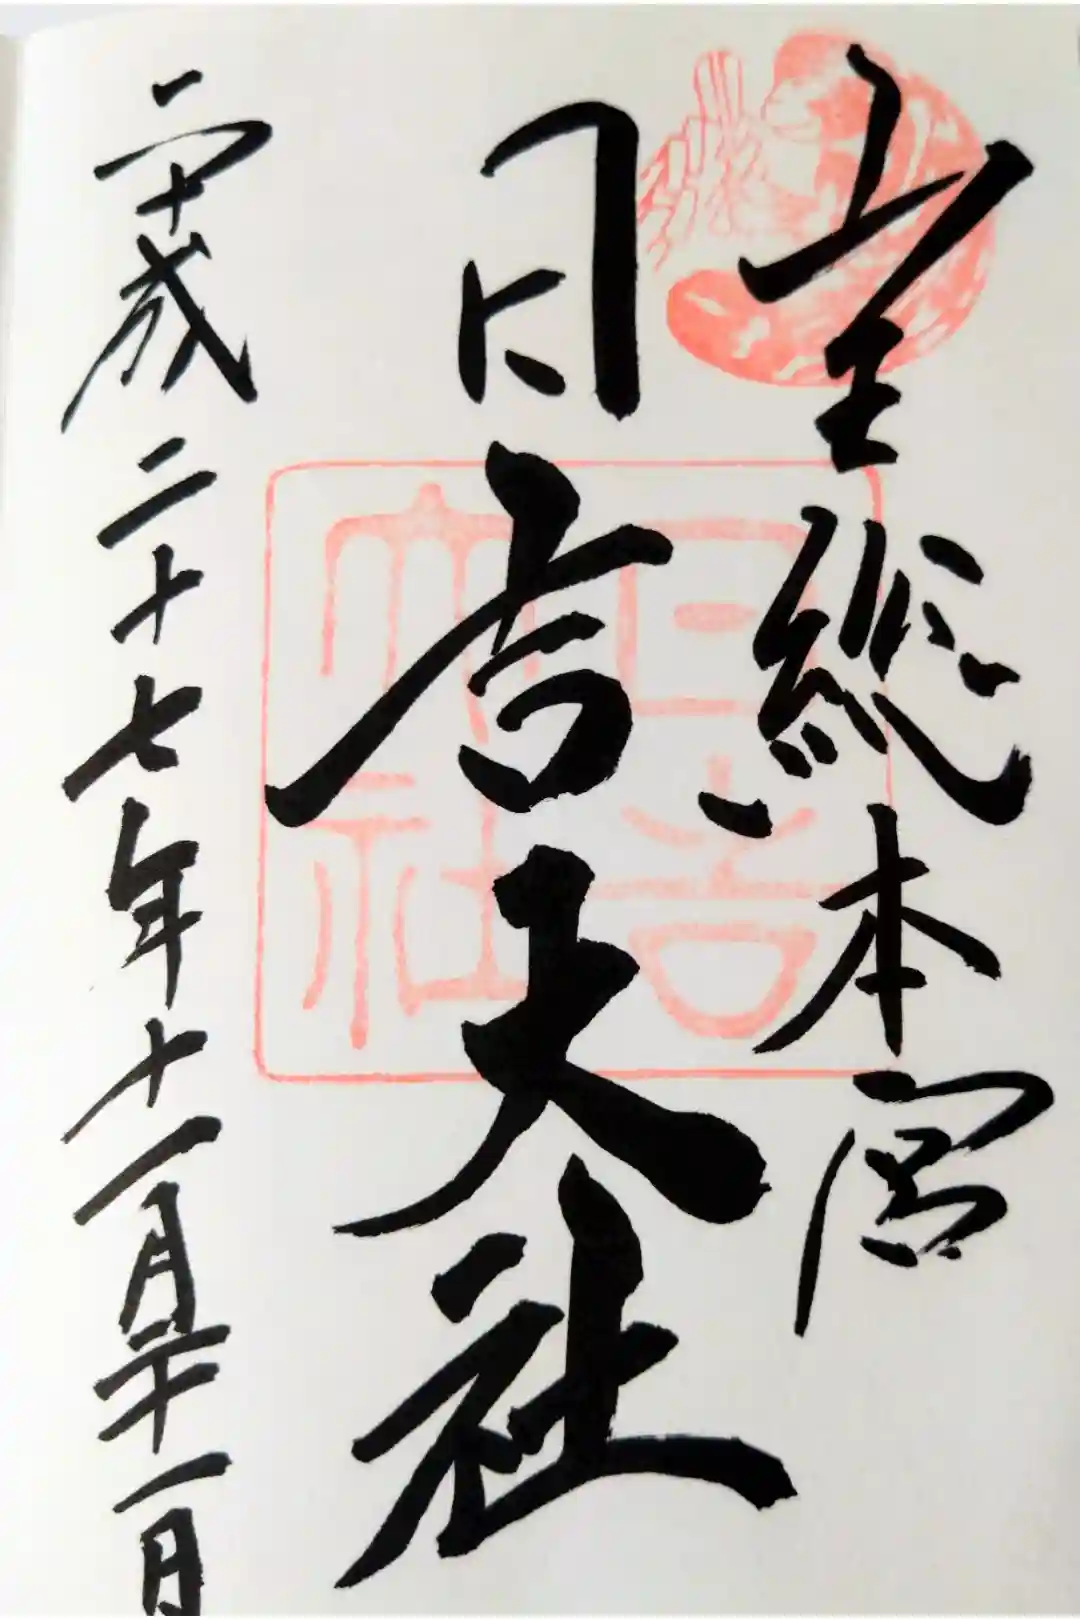 山王総本宮
日吉大社
平成二十七年十一月二十一日
日吉大社